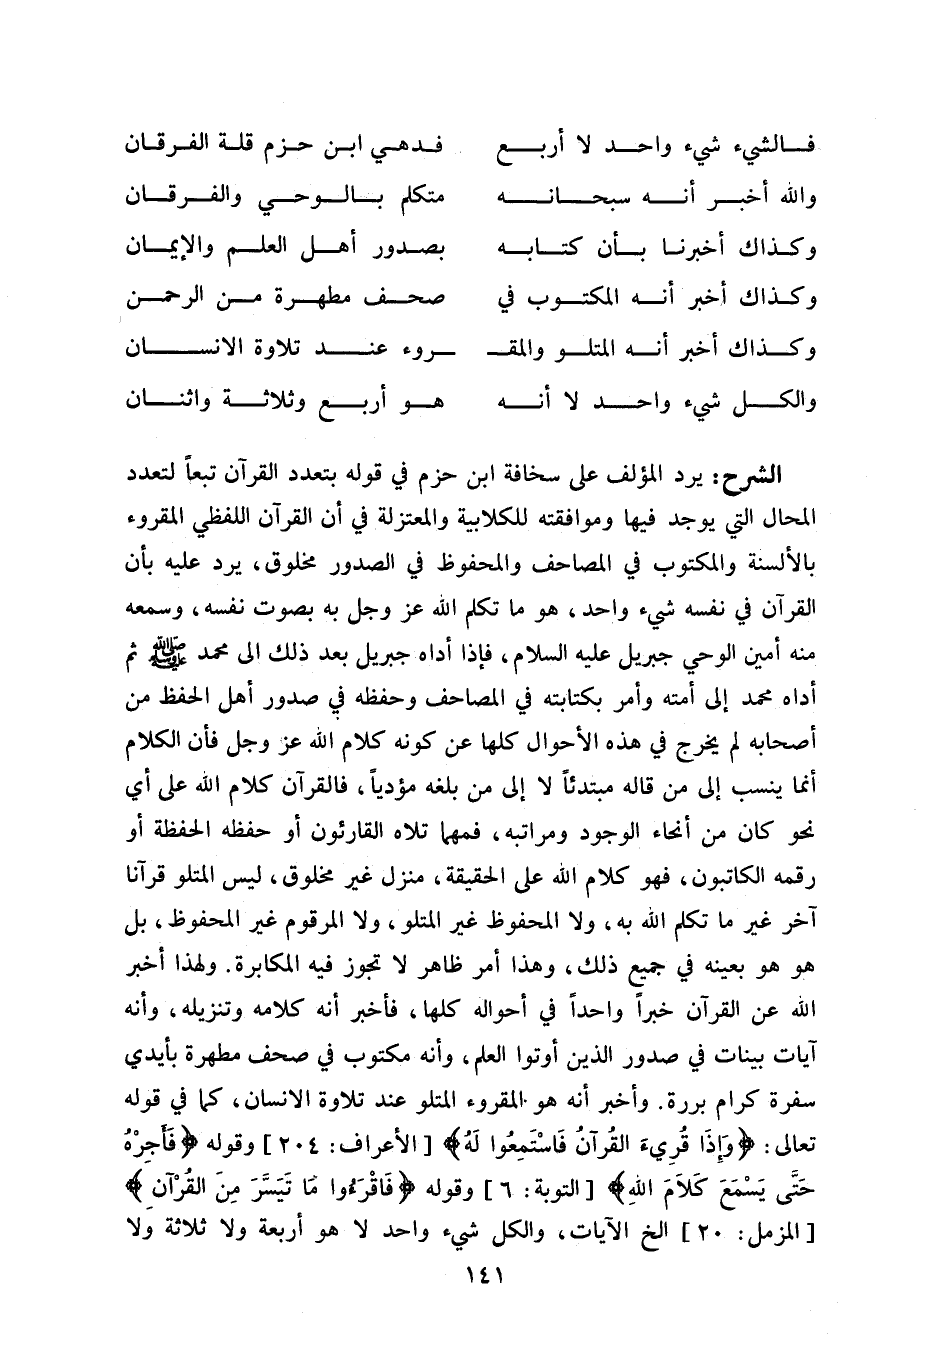 فالشيء شيء واحد لا أربع فدهي ابن حزم قلة الفرقان
والله أخبر أنه سبحانه متكلم بالوحي والفرقان
وكذاك أخبرنا بأن كتابه بصدور أهل العلم والإيمان
وكذاك أخبر أنه المكتوب في صحف مطهرة من الرحمن
وكذاك أخبر أنه المتلو والمقـ ـروء عند تلاوة الانسان
والكل شيء واحد لا أنه هو أربع وثلاثة واثنان
الشرح: يرد المؤلف على سخافة ابن حزم في قوله بتعدد القرآن تبعاً لتعدد
المحال التي يوجد فيها وموافقته للكلابية والمعتزلة في أن القرآن اللفظي المقروء
بالألسنة والمكتوب في المصاحف والمحفوظ في الصدور مخلوق، يرد عليه بأن
القرآن في نفسه شيء واحد، هو ما تكلم الله عز وجل به بصوت نفسه، وسمعه
منه أمين الوحي جبريل عليه السلام، فإذا أداه جبريل بعد ذلك الى محمد ﷺ ثم
أداه محمد إلى أمته وأمر بكتابته في المصاحف وحفظه في صدور أهل الحفظ من
أصحابه لم يخرج في هذه الأحوال كلها عن كونه كلام الله عز وجل فأن الكلام
أنما ينسب إلى من قاله مبتدئاً لا إلى من بلغه مؤدياً، فالقرآن كلام الله على أي
نحو كان من أنحاء الوجود ومراتبه، فمهما تلاه القارئون أو حفظه الحفظة أو
رقمه الكاتبون، فهو كلام الله على الحقيقة، منزل غير مخلوق، ليس المتلو قرآنا
آخر غير ما تكلم الله به، ولا المحفوظ غير المتلو، ولا المرقوم غير المحفوظ، بل
هو هو بعينه في جميع ذلك، وهذا أمر ظاهر لا تجوز فيه المكابرة. ولهذا أخبر
الله عن القرآن خبراً واحداً في أحواله كلها، فأخبر أنه كلامه وتنزيله، وأنه
آيات بينات في صدور الذين أوتوا العلم، وأنه مكتوب في صحف مطهرة بأيدي
سفرة كرام بررة. وأخبر أنه هو المقروء المتلو عند تلاوة الانسان، كما في قوله
تعالى: ﴿وَإذَا قُرِيءَ القُرآنُ فَاسْتَمِعُوا لَهُ﴾ [الأعراف: ٢٠٤] وقوله ﴿فَأَجِرْهُ
حَتَّى يَسْمَعَ كَلَامَ اللهِ﴾ [التوبة: ٦] وقوله ﴿فَاقْرَءُوا مَا تَيَسَّرَ مِنَ القُرْآنِ﴾
[المزمل: ٢٠] الخ الآيات، والكل شيء واحد لا هو أربعة ولا ثلاثة ولا
١٤١